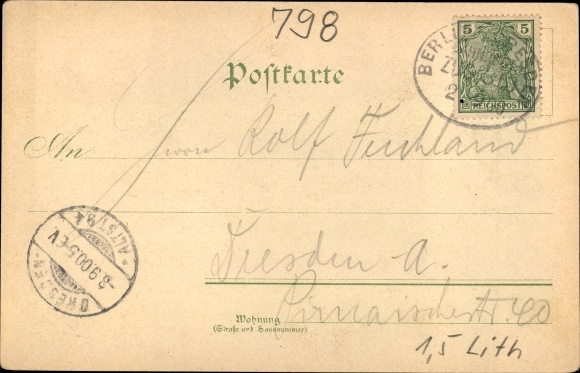 798
5 5
REICHSPOST
BERLIN
Postkarte
An Herrn Rolf Fuchland
DRESDEN-ALTST. 9 k
-3.9.00.5-6V.
Dresden A.
Pirnaischestr. 40
Wohnung
(Straße und Hausnummer)
1,5 Lith